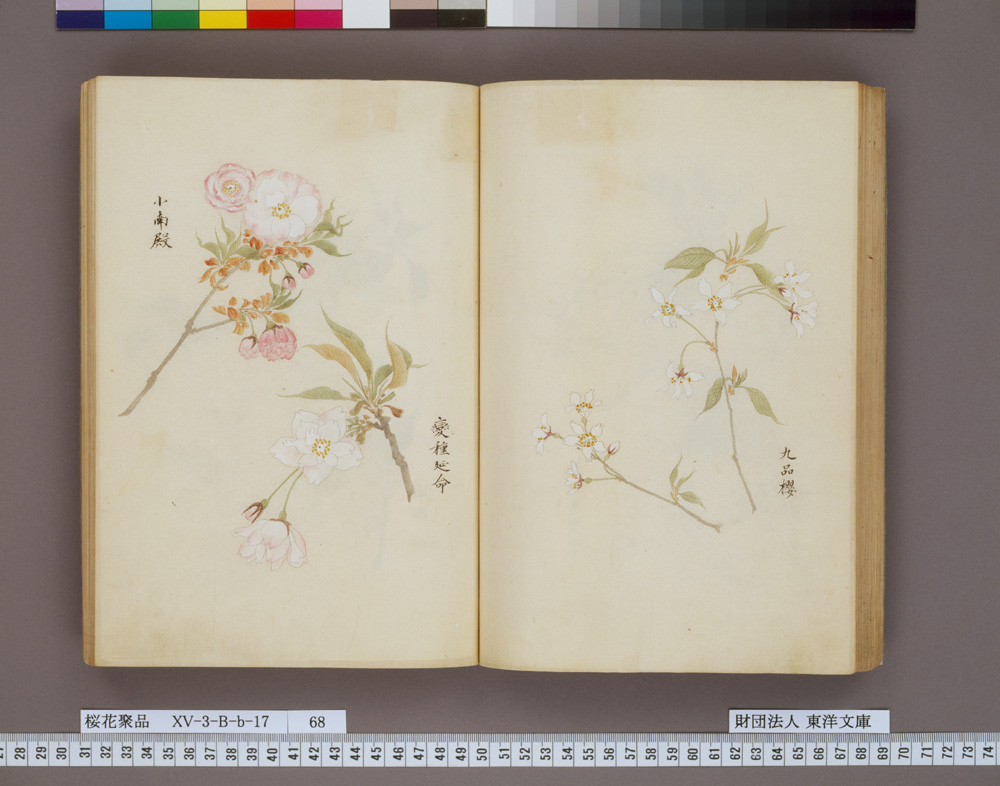 九品櫻
變種延命
小南殿
桜花聚品 XV-3-B-b-17 68
財団法人 東洋文庫
29 30 31 32 33 34 35 36 37 38 39 40 41 42 43 44 45 46 47 48 49 50 51 52 53 54 55 56 57 58 59 60 61 62 63 64 65 66 67 68 69 70 71 72 73 74